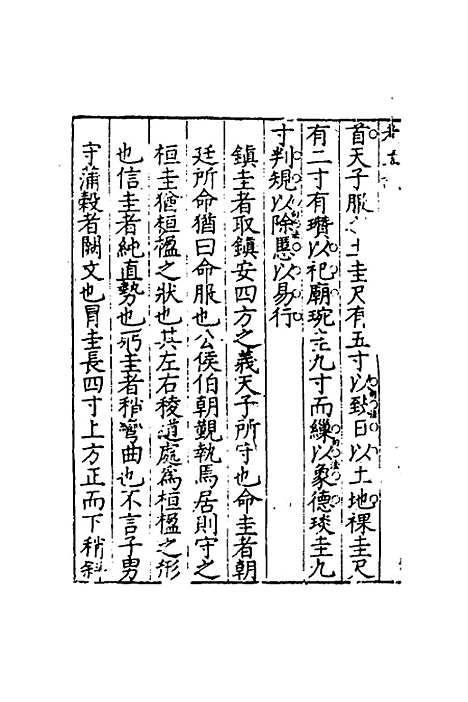 首天子服之土圭尺有五寸以致日以土地祼圭尺
有二寸有瓚以祀廟琬圭九寸而繅以象德琰圭九
寸判規以除慝以易行
鎮圭者取鎮安四方之義天子所守也命圭者朝
廷所命猶曰命服也公侯伯朝覲執焉居則守之
桓圭猶桓楹之狀也其左右稜道處為桓楹之形
也信圭者純直勢也躬圭者稍彎曲也不言子男
守蒲穀者闕文也冒圭長四寸上方正而下稍斜